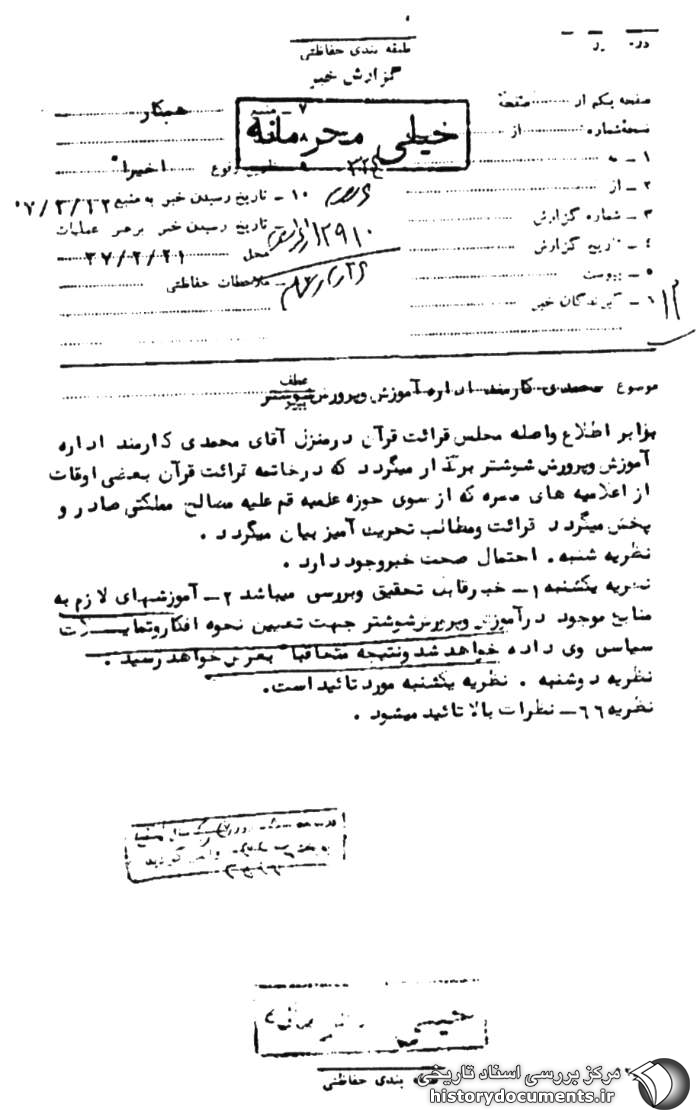 طبقه بندی حفاظتی
گزارش خبر
صفحه یکم از صفحه
نسخه شماره از
۱ - به
۲ - از
۳ - شماره گزارش
۴ - تاریخ گزارش
۵ - پیوست
۶ - گیرندگان خبر
خیلی محرمانه
۷ - منبع همکار
وقوع اخیراً
۱۰ - تاریخ رسیدن خبر به منبع
تاریخ رسیدن خبر برهبر عملیات
محل
ملاحظات حفاظتی
موضوع محمدی کارمند اداره آموزش وپرورش شوشتر
عطف
پیرو
بنابر اطلاع واصله مجلس قرائت قرآن درمنزل آقای محمدی کارمند اداره
آموزش وپرورش شوشتر برگذار میگردد که درخاتمه قرائت قرآن بعضی اوقات
از اعلامیه های مضره که از سوی حوزه علمیه قم علیه مصالح مملکتی صادر و
پخش میگردد قرائت ومطالب تحریک آمیز بیان میگردد .
نظریه شنبه . احتمال صحت خبروجود دارد .
نظریه یکشنبه ۱ - خبرقابل تحقیق وبررسی میباشد ۲ - آموزشهای لازم به
منابع موجود درآموزش وپرورش شوشتر جهت تعیین نحوه افکاروتمایلات
سیاسی وی داده خواهد شد ونتیجه متعاقباً بعرض خواهد رسید .
نظریه دوشنبه . نظریه یکشنبه مورد تائید است.
نظریه ۶۶ - نظرات بالا تائید میشود .
بندی حفاظتی
مرکز بررسی اسناد تاریخی
historydocuments.ir